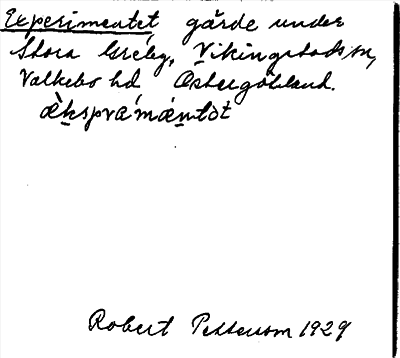 Experimentet gärde under
Stora Greby, Vikingstads sn,
Valkebo hd Östergötland.
æ̀ksprämǽntǝt
Robert Pettersson 1929